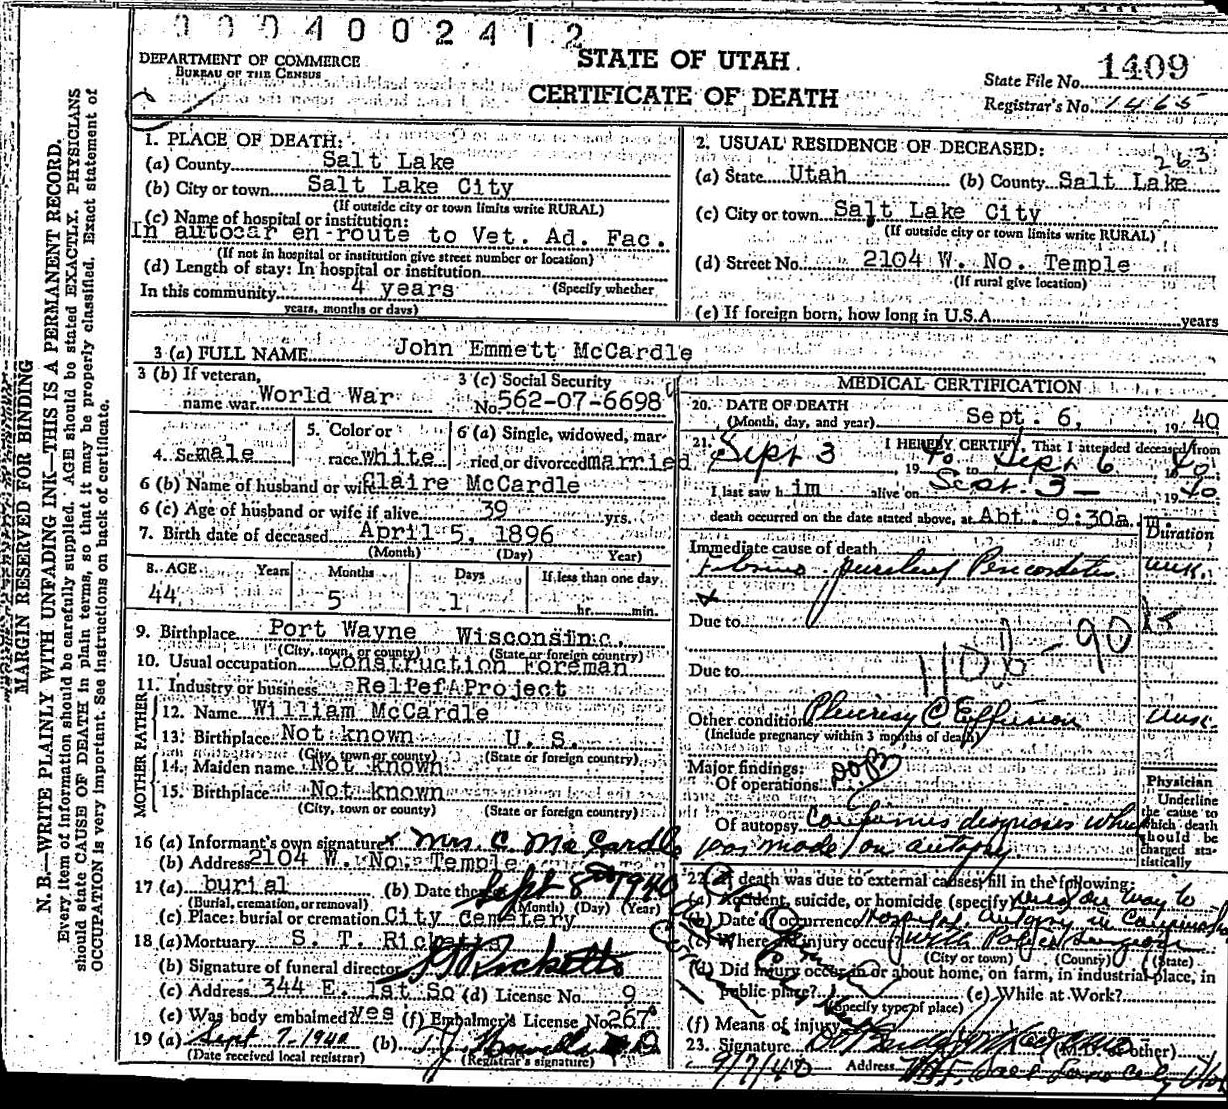 0004002412
DEPARTMENT OF COMMERCE
BUREAU OF THE CENSUS
STATE OF UTAH
CERTIFICATE OF DEATH
State File No. 1409
Registrar's No. 1465
MARGIN RESERVED FOR BINDING
N. B.—WRITE PLAINLY WITH UNFADING INK—THIS IS A PERMANENT RECORD.
Every item of information should be carefully supplied. AGE should be stated EXACTLY. PHYSICIANS
should state CAUSE OF DEATH in plain terms, so that it may be properly classified. Exact statement of
OCCUPATION is very important. See instructions on back of certificate.
1. PLACE OF DEATH:
(a) County Salt Lake
(b) City or town Salt Lake City
(If outside city or town limits write RURAL)
(c) Name of hospital or institution:
In autocar en route to Vet. Ad. Fac.
(If not in hospital or institution give street number or location)
(d) Length of stay: In hospital or institution
In this community 4 years (Specify whether
years, months or days)
2. USUAL RESIDENCE OF DECEASED:
263
(a) State Utah (b) County Salt Lake
(c) City or town Salt Lake City
(If outside city or town limits write RURAL)
(d) Street No. 2104 W. No. Temple
(If rural give location)
(e) If foreign born, how long in U.S.A. years
3 (a) FULL NAME John Emmett McCardle
3 (b) If veteran, name war World War
3 (c) Social Security No. 562-07-6698
4. Sex male
5. Color or race White
6 (a) Single, widowed, married or divorced married
6 (b) Name of husband or wife Claire McCardle
6 (c) Age of husband or wife if alive 39 yrs.
7. Birth date of deceased April 5, 1896
(Month) (Day) Year)
8. AGE Years Months Days If less than one day
44 5 1 hr. min.
9. Birthplace Port Wayne Wisconsin
(City, town, or county) (State or foreign country)
10. Usual occupation Construction Foreman
11. Industry or business Relief Project
FATHER
12. Name William McCardle
13. Birthplace Not known U. S.
(City, town or county) (State or foreign country)
MOTHER
14. Maiden name Not known
15. Birthplace Not known
(City, town or county) (State or foreign country)
16 (a) Informant's own signature x Mrs. C. McCardle
(b) Address 2104 W. No. Temple
17 (a) burial (b) Date thereof Sept 8 1940
(Burial, cremation, or removal) (Month) (Day) (Year)
(c) Place: burial or cremation City Cemetery
18 (a) Mortuary S. T. Ricketts
(b) Signature of funeral director Ricketts
(c) Address 344 E. 1st So (d) License No. 9
(e) Was body embalmed? yes (f) Embalmer's License No. 267
19 (a) Sept 7-1940 (b)
(Date received local registrar) (Registrar's signature)
MEDICAL CERTIFICATION
20. DATE OF DEATH
(Month, day, and year) Sept. 6, 1940
21. I HEREBY CERTIFY, That I attended deceased from
Sept 3 1940 to Sept 6 1940
I last saw him alive on Sept. 3 - 1940
death occurred on the date stated above, at Abt. 9:30a m.
Duration
Immediate cause of death
Fibrino purulent Pericarditis unk.
Due to
1100-90
Due to
Other conditions Pleurisy c Effusion unk.
(Include pregnancy within 3 months of death)
Major findings:
Of operations
Of autopsy Confirms diagnoses which
was made on autopsy.
Physician
Underline
the cause to
which death
should be
charged sta-
tistically
22. If death was due to external causes, fill in the following:
(a) Accident, suicide, or homicide (specify) Died on way to
(b) Date of occurrence Hospital. Autopsy in conjunction
(c) Where did injury occur? with Police Surgeon
(City or town) (County) (State)
(d) Did injury occur in or about home, on farm, in industrial place, in
public place? (e) While at Work?
(Specify type of place)
(f) Means of injury
23. Signature (M.D. or other)
9/7/40 Address Salt Lake City Utah